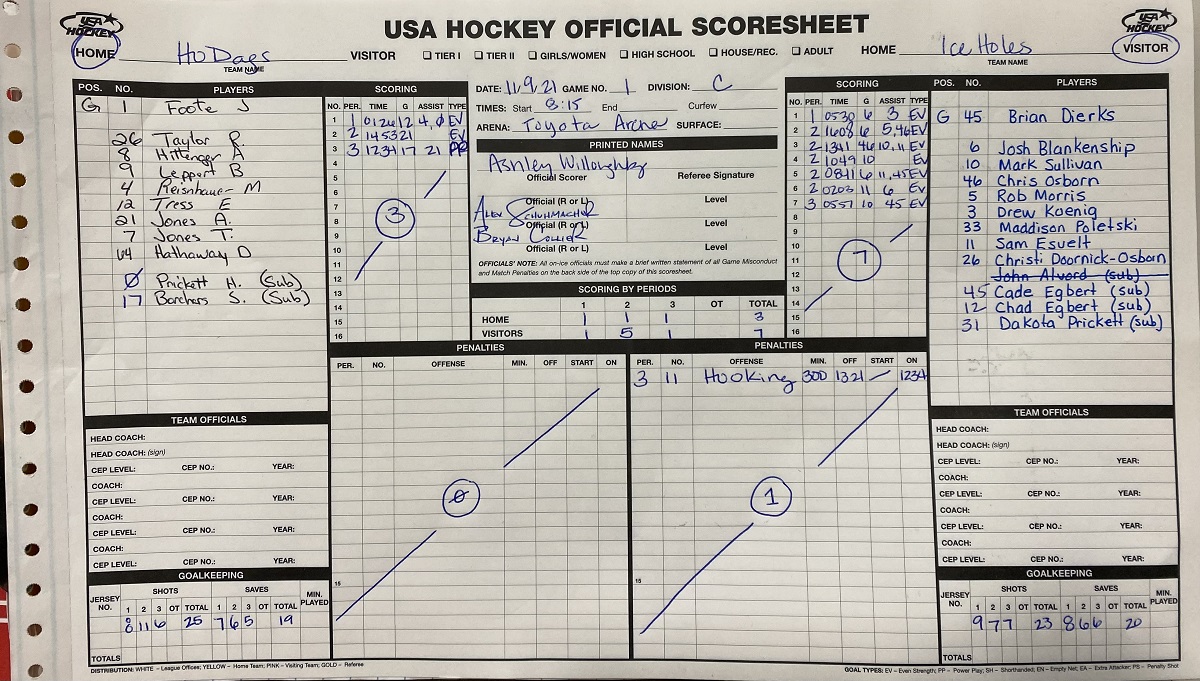 USA HOCKEY OFFICIAL SCORESHEET
USA HOCKEY
HOME Ho Dags VISITOR ☐ TIER I ☐ TIER II ☐ GIRLS/WOMEN ☐ HIGH SCHOOL ☐ HOUSE/REC. ☐ ADULT HOME Ice Holes VISITOR
TEAM NAME
TEAM NAME
USA HOCKEY
POS. NO. PLAYERS
G 1 Foote J
26 Taylor R.
8 Hittenger A
9 Leppert B
4 Reisnhauer M
12 Tress E
21 Jones A.
7 Jones T.
64 Hathaway D
0 Prickett H. (Sub)
17 Borchers S. (Sub)
SCORING
NO. PER. TIME G ASSIST TYPE
1 1 0126 12 4, 0 EV
2 2 1453 21 EV
3 3 1234 17 21 PP
4
5
6
7
8
9
10
11
12
13
14
15
16
3
DATE: 11/9/21 GAME NO. 1 DIVISION: C
TIMES: Start 8:15 End Curfew
ARENA: Toyota Arena SURFACE:
PRINTED NAMES
Ashley Willoughby
Official Scorer Referee Signature
Official (R or L) Level
Alex Schuhmacher
Official (R or L) Level
Bryan Collier
Official (R or L) Level
OFFICIALS' NOTE: All on-ice officials must make a brief written statement of all Game Misconduct
and Match Penalties on the back side of the top copy of this scoresheet.
SCORING BY PERIODS
1 2 3 OT TOTAL
HOME 1 1 1 3
VISITORS 1 5 1 7
SCORING
NO. PER. TIME G ASSIST TYPE
1 1 0530 6 3 EV
2 2 1608 6 5,46 EV
3 2 1341 46 10,11 EV
4 2 1049 10 EV
5 2 0841 6 11,45 EV
6 2 0203 11 6 EV
7 3 0557 10 45 EV
8
9
10
11
12
13
14
15
16
7
POS. NO. PLAYERS
G 45 Brian Dierks
6 Josh Blankenship
10 Mark Sullivan
46 Chris Osborn
5 Rob Morris
3 Drew Koenig
33 Maddison Poletski
11 Sam Esuelt
26 Christi Doornick-Osborn
John Alvord (sub)
45 Cade Egbert (sub)
12 Chad Egbert (sub)
31 Dakota Prickett (sub)
PENALTIES
PER. NO. OFFENSE MIN. OFF START ON
0
15
PENALTIES
PER. NO. OFFENSE MIN. OFF START ON
3 11 Hooking 300 1321 1234
1
15
TEAM OFFICIALS
HEAD COACH:
HEAD COACH: (sign)
CEP LEVEL: CEP NO.: YEAR:
COACH:
CEP LEVEL: CEP NO.: YEAR:
COACH:
CEP LEVEL: CEP NO.: YEAR:
COACH:
CEP LEVEL: CEP NO.: YEAR:
GOALKEEPING
JERSEY NO. SHOTS SAVES MIN. PLAYED
1 2 3 OT TOTAL 1 2 3 OT TOTAL
8 11 6 25 7 6 5 19
TOTALS
TEAM OFFICIALS
HEAD COACH:
HEAD COACH: (sign)
CEP LEVEL: CEP NO.: YEAR:
COACH:
CEP LEVEL: CEP NO.: YEAR:
COACH:
CEP LEVEL: CEP NO.: YEAR:
COACH:
CEP LEVEL: CEP NO.: YEAR:
GOALKEEPING
JERSEY NO. SHOTS SAVES MIN. PLAYED
1 2 3 OT TOTAL 1 2 3 OT TOTAL
9 7 7 23 8 6 6 20
TOTALS
DISTRIBUTION: WHITE – League Offices; YELLOW – Home Team; PINK – Visiting Team; GOLD – Referee
GOAL TYPES: EV – Even Strength; PP – Power Play; SH – Shorthanded; EN – Empty Net; EA – Extra Attacker; PS – Penalty Shot